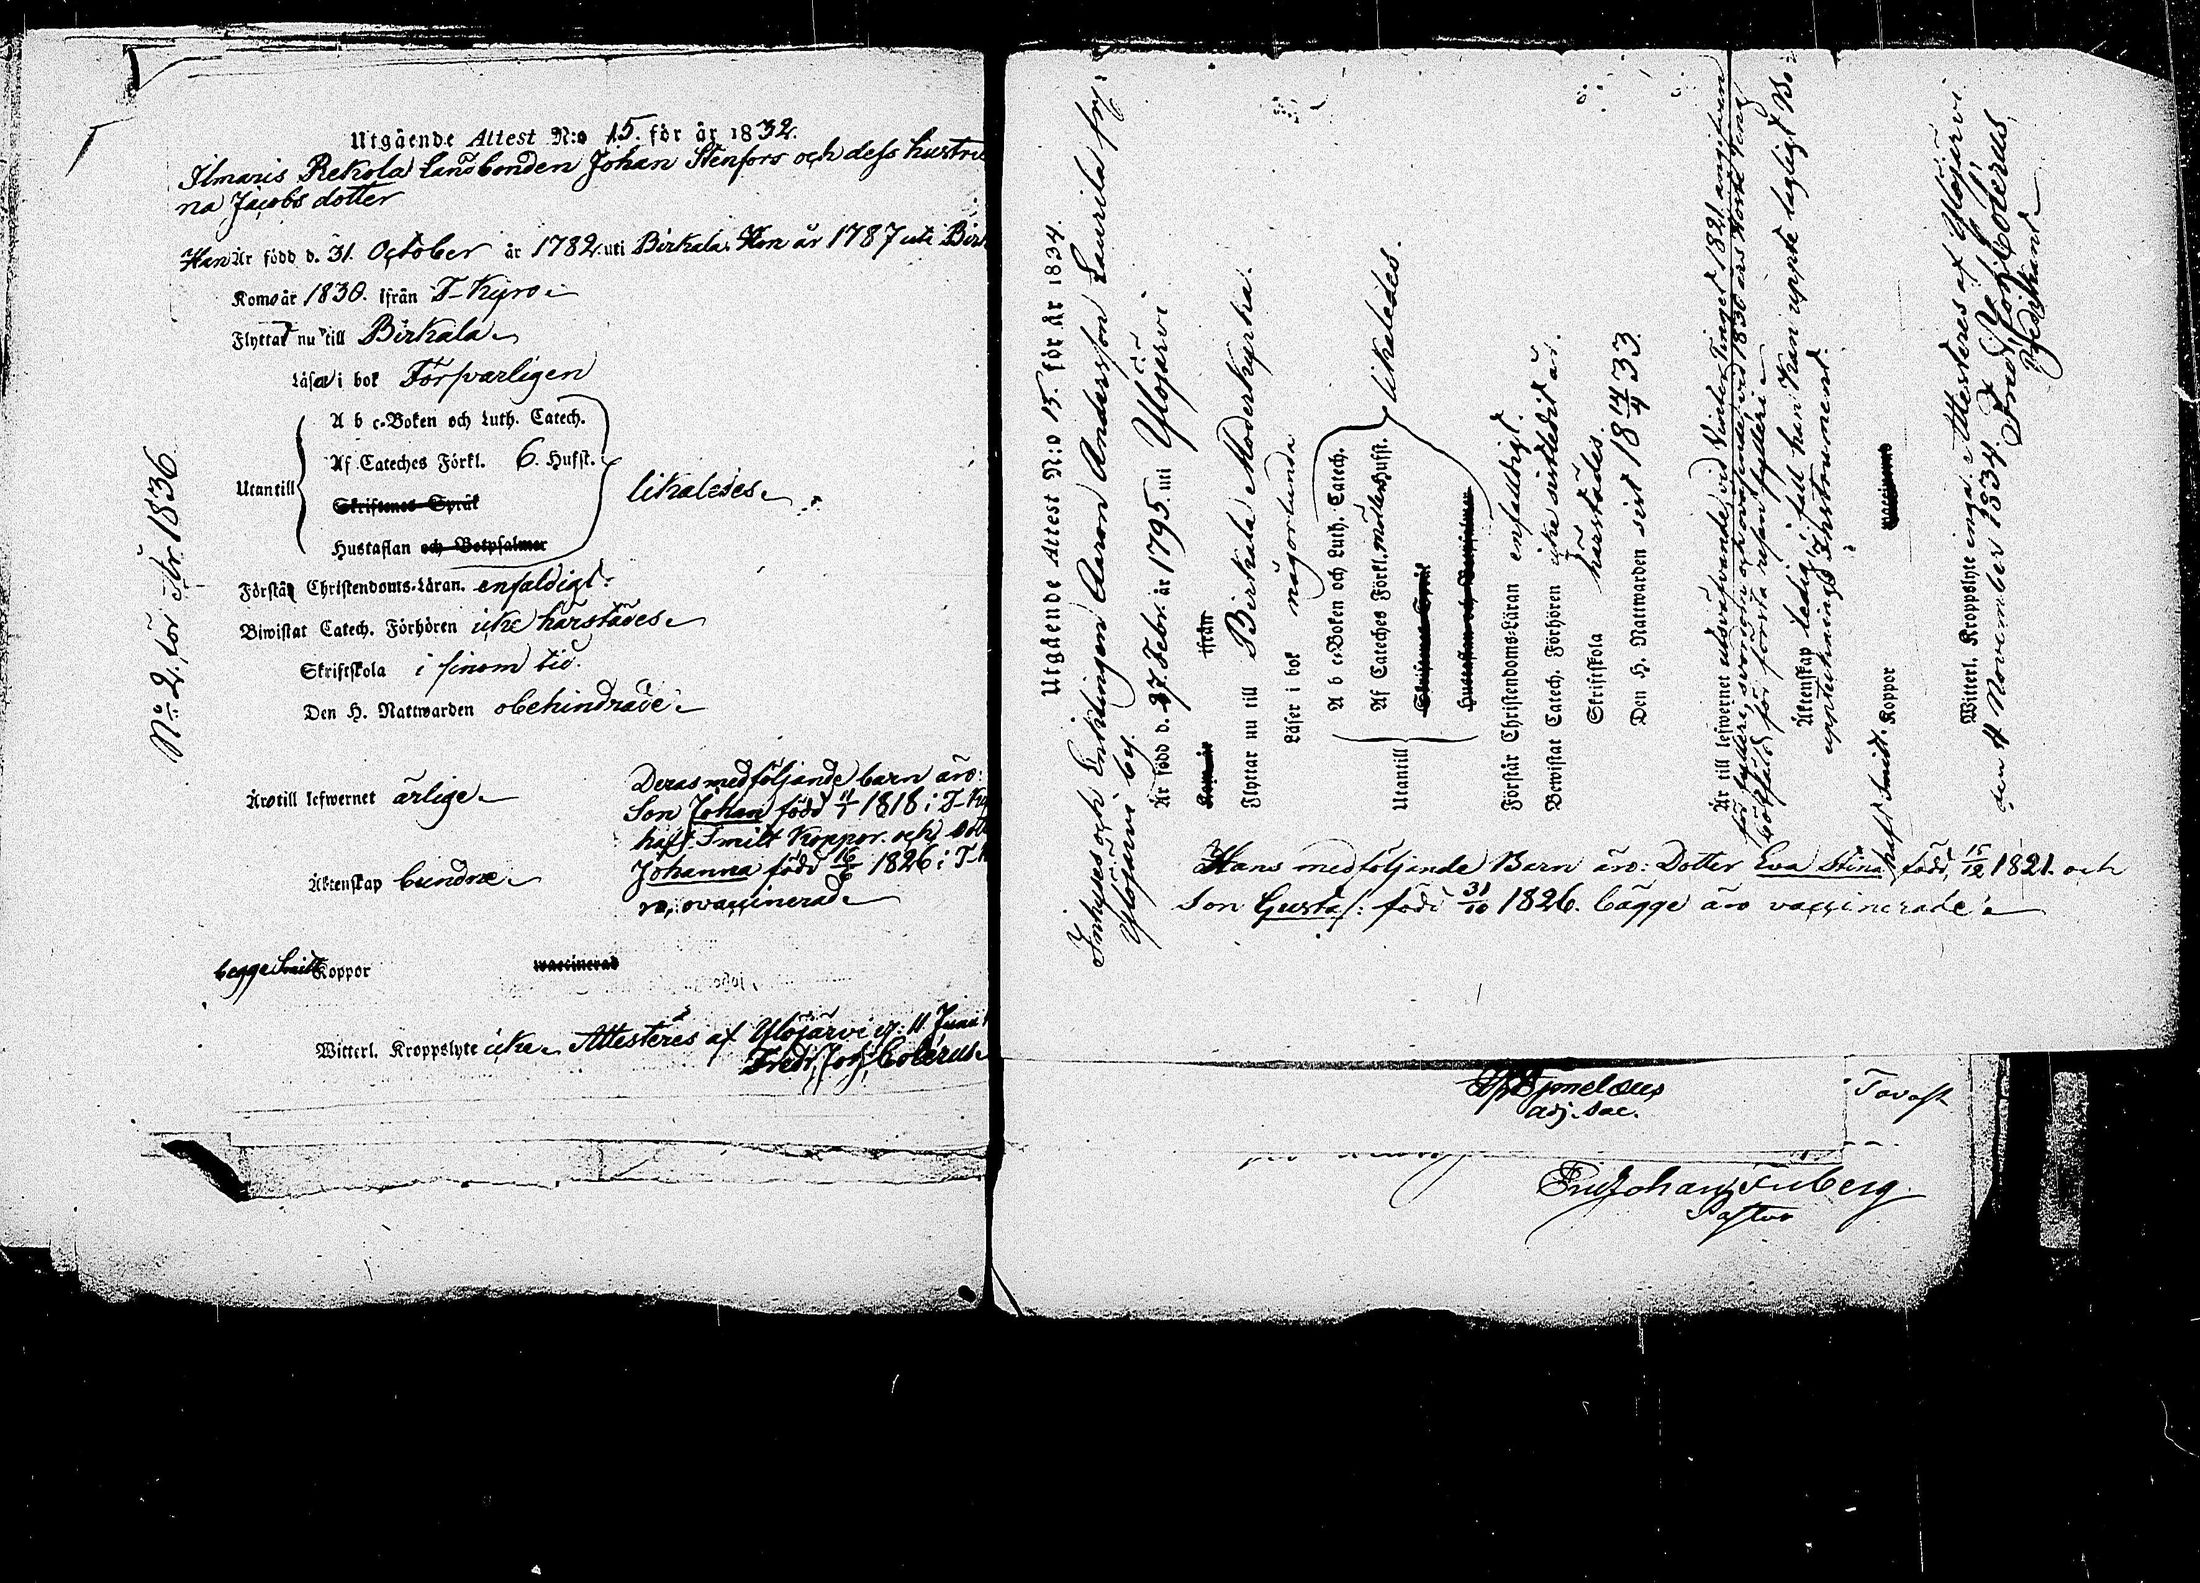 Utgående Attest N:o 15. för år 1832.
Ilmaris Rekola Landbonden Johan Stenfors och dess hustru
na Jacobs dotter
Han Är född d. 31. October år 1782. uti Birkala. Hon år 1787 uti Birk
Kom år 1830. ifrån T-Kyro
Flyttat nu till Birkala
Läsa i bok Försvarligen
Utantill
A b c-Boken och Luth. Catech.
Af Cateches Förkl. 6. Hufst.
Skriftenes Språk
Hustaflan och Botpsalmer
likaledes
Förstån Christendoms-Läran. enfaldigt.
Biwistat Catech. Förhören icke härstädes
Skriftskola i sinom tid.
Den H. Nattwarden obehindrade
Äro till lefwernet ärlige
Äktenskap bundne
Deras medföljande barn äro:
Son Johan född 11/1 1818 i T-Ky
haft Smitt Koppor. och dott
Johanna född 16/6 1826 i T-K
ro, ovaccinerad
begge Smitt Koppor vaccinerad
Witterl. Kroppslyte icke Attesteres af Ylöjärvi d. 11 Junii 1
Fredr. Joh. Colerus
N:o 2. för År 1836
Utgående Attest N:o 15. för år 1834.
Inhyses och Enklingen Aaron Andersson Laurila fr.
Ylöjärvi by.
Är född d. 27. Febr. år 1795. uti Ylöjärvi
Kom år ifrån
Flyttar nu till Birkala Moderkyrka.
Läser i bok någorlunda
Utantill
A b c-Boken och Luth. Catech.
Af Cateches Förkl. Möllers Hufst.
Skriftenes Språk
Hustaflan och Botpsalmer
likaledes.
Förstår Christendoms-Läran enfaldigt.
Bewistat Catech. Förhören icke sistledit år.
Skriftskola härstädes.
Den H. Nattwarden sist 18 14/4 33.
Är till lefwernet utsväfvande, vid Vinter Tinget 1821 angifven
för fylleri, svordom och ovasende, vid 1830 års Höste Ting
bötfäld för första resan fylleri
Äktenskap ledig, i fall han kan uppte lagligt Bo-
uppteckning Instrument.
haft Smitt. Koppor vaccinerad
Witterl. Kroppslyte inga. Attesteres af Ylöjärvi
den 4 November 1834. Fred. Joh. Colerus,
Predikant
Hans medföljande Barn äro: Dotter Eva Stina, född, 15/12 1821. och
Son Gustaf: född 31/10 1826. bägge äro vaccinerade
adj. sac.
Tavast
Fred. Johan Friberg.
Pastor